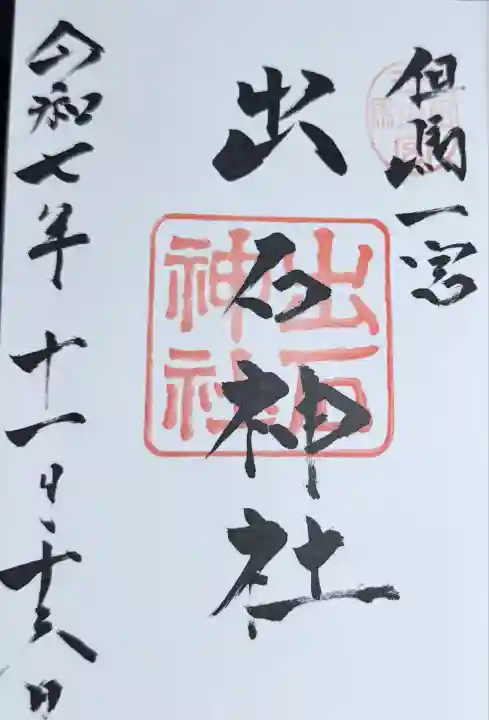 但馬一宮
出石神社
出石神社
令和七年十一月十六日